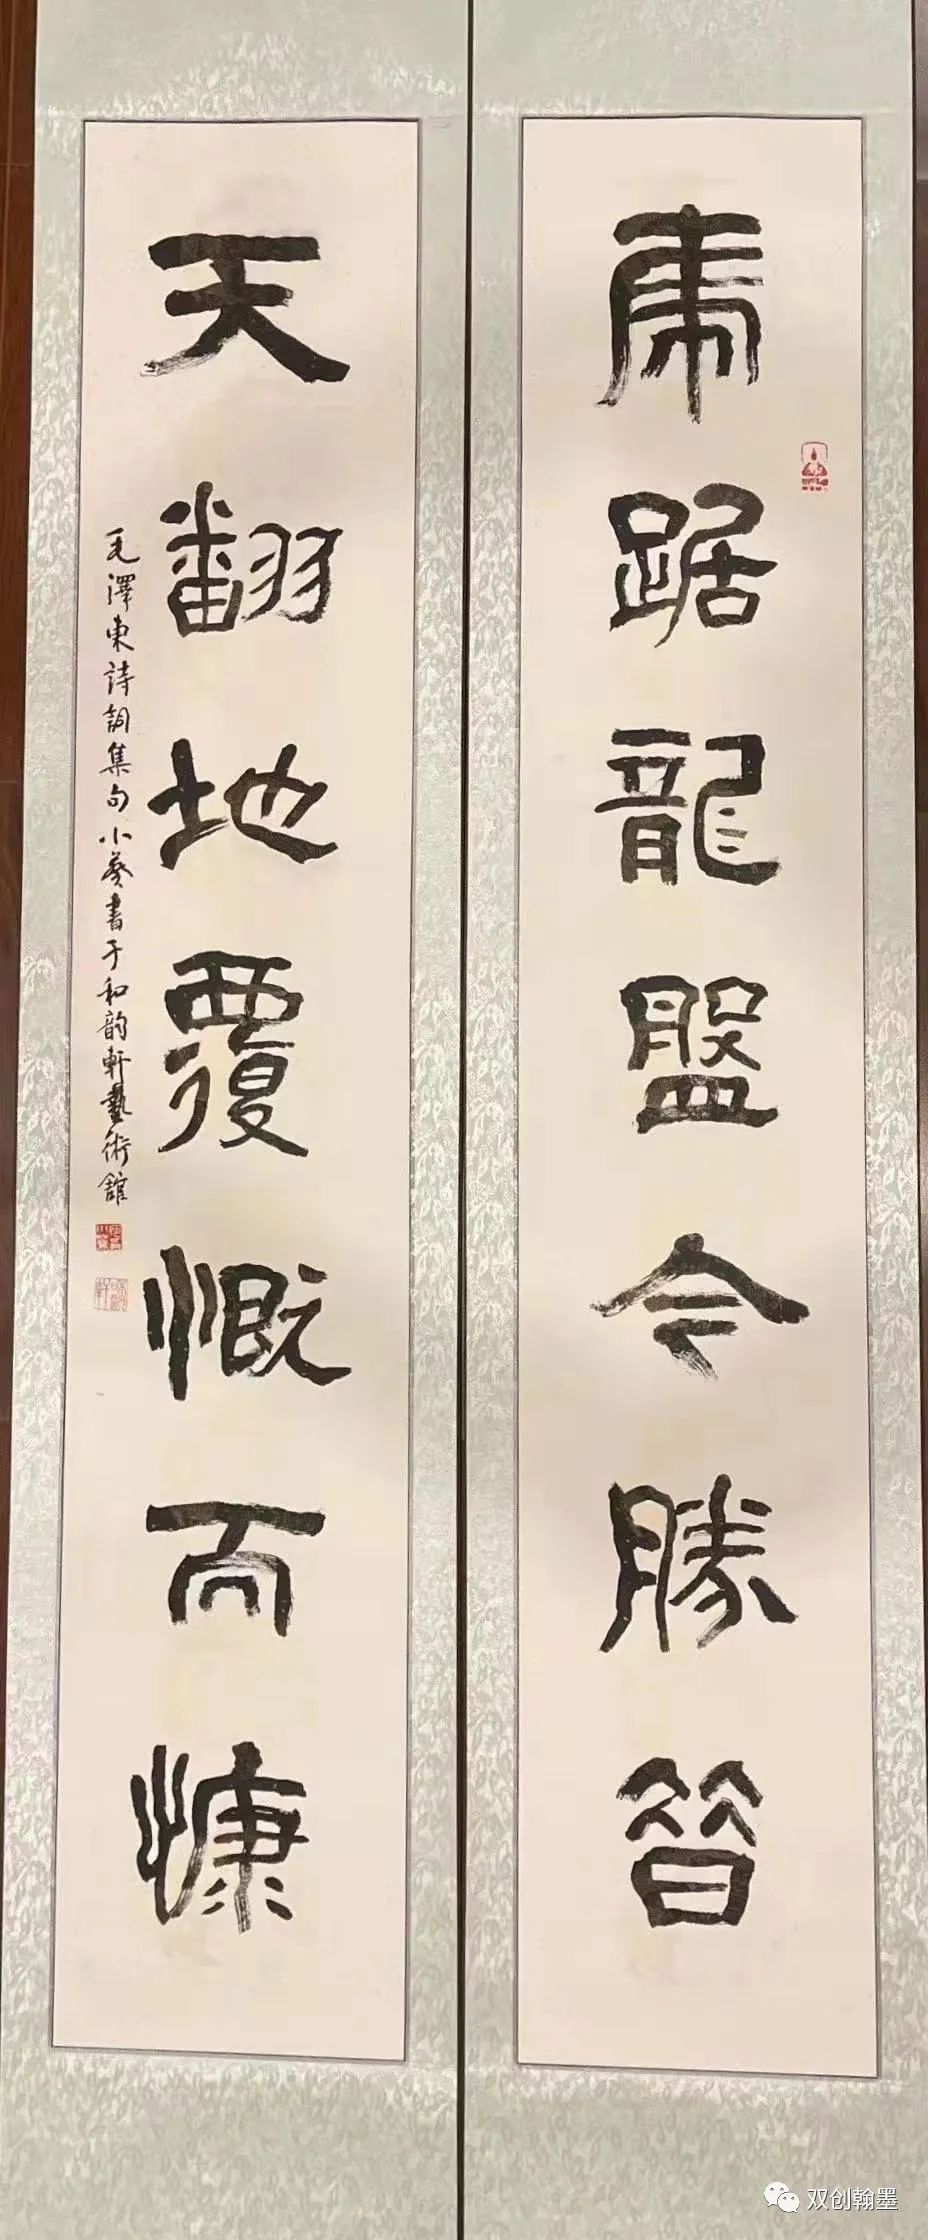 虎踞龍盤今勝昔
天翻地覆慨而慷
毛澤東詩詞集句小葵書于和韵軒藝術館
双创翰墨